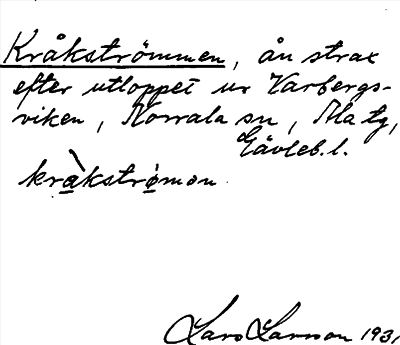 Kråkströmmen, ån strax
efter utloppet ur Varbergs-
viken, Norrala sn, Ala tg,
Gävleb. l.
kråkstrømon
Lars Larsson 1931